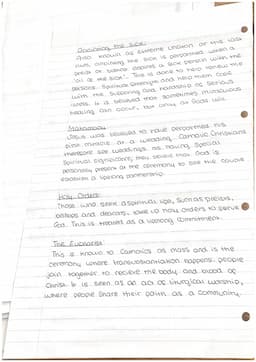 Anointing the Sick:
Also known as extreme unction or the last
rites, anointing the sick is performed when a
priest or bishop anoints a sick person with the
'oil of the sick'. This is done to help renew the
persons spiritual strength and help them cope
with the suffering and hardship of serious
illness. It is believed that sometimes miraculous
healing can occur, but only at Gods will.
Matrimony
Jesus was believed to have performed his
first miracle at a wedding. Catholic Christians
therefore see weddings as having special
spiritual significance, they believe that God is
personally present at the ceremony to see the couple
establish a lifelong partnership.
Holy Orders:
Those who seek a spiritual life, such as priests,
bishops and deacons, take up holy orders to serve
God. This is treated as a lifelong commitment.
The Eucharist:
This is known to Catholics as mass and is the
ceremony where transubstantiation happens. People
join together to recieve the body and blood of
Christ. It is seen as an act of liturgical worship,
where people share their faith as a community.